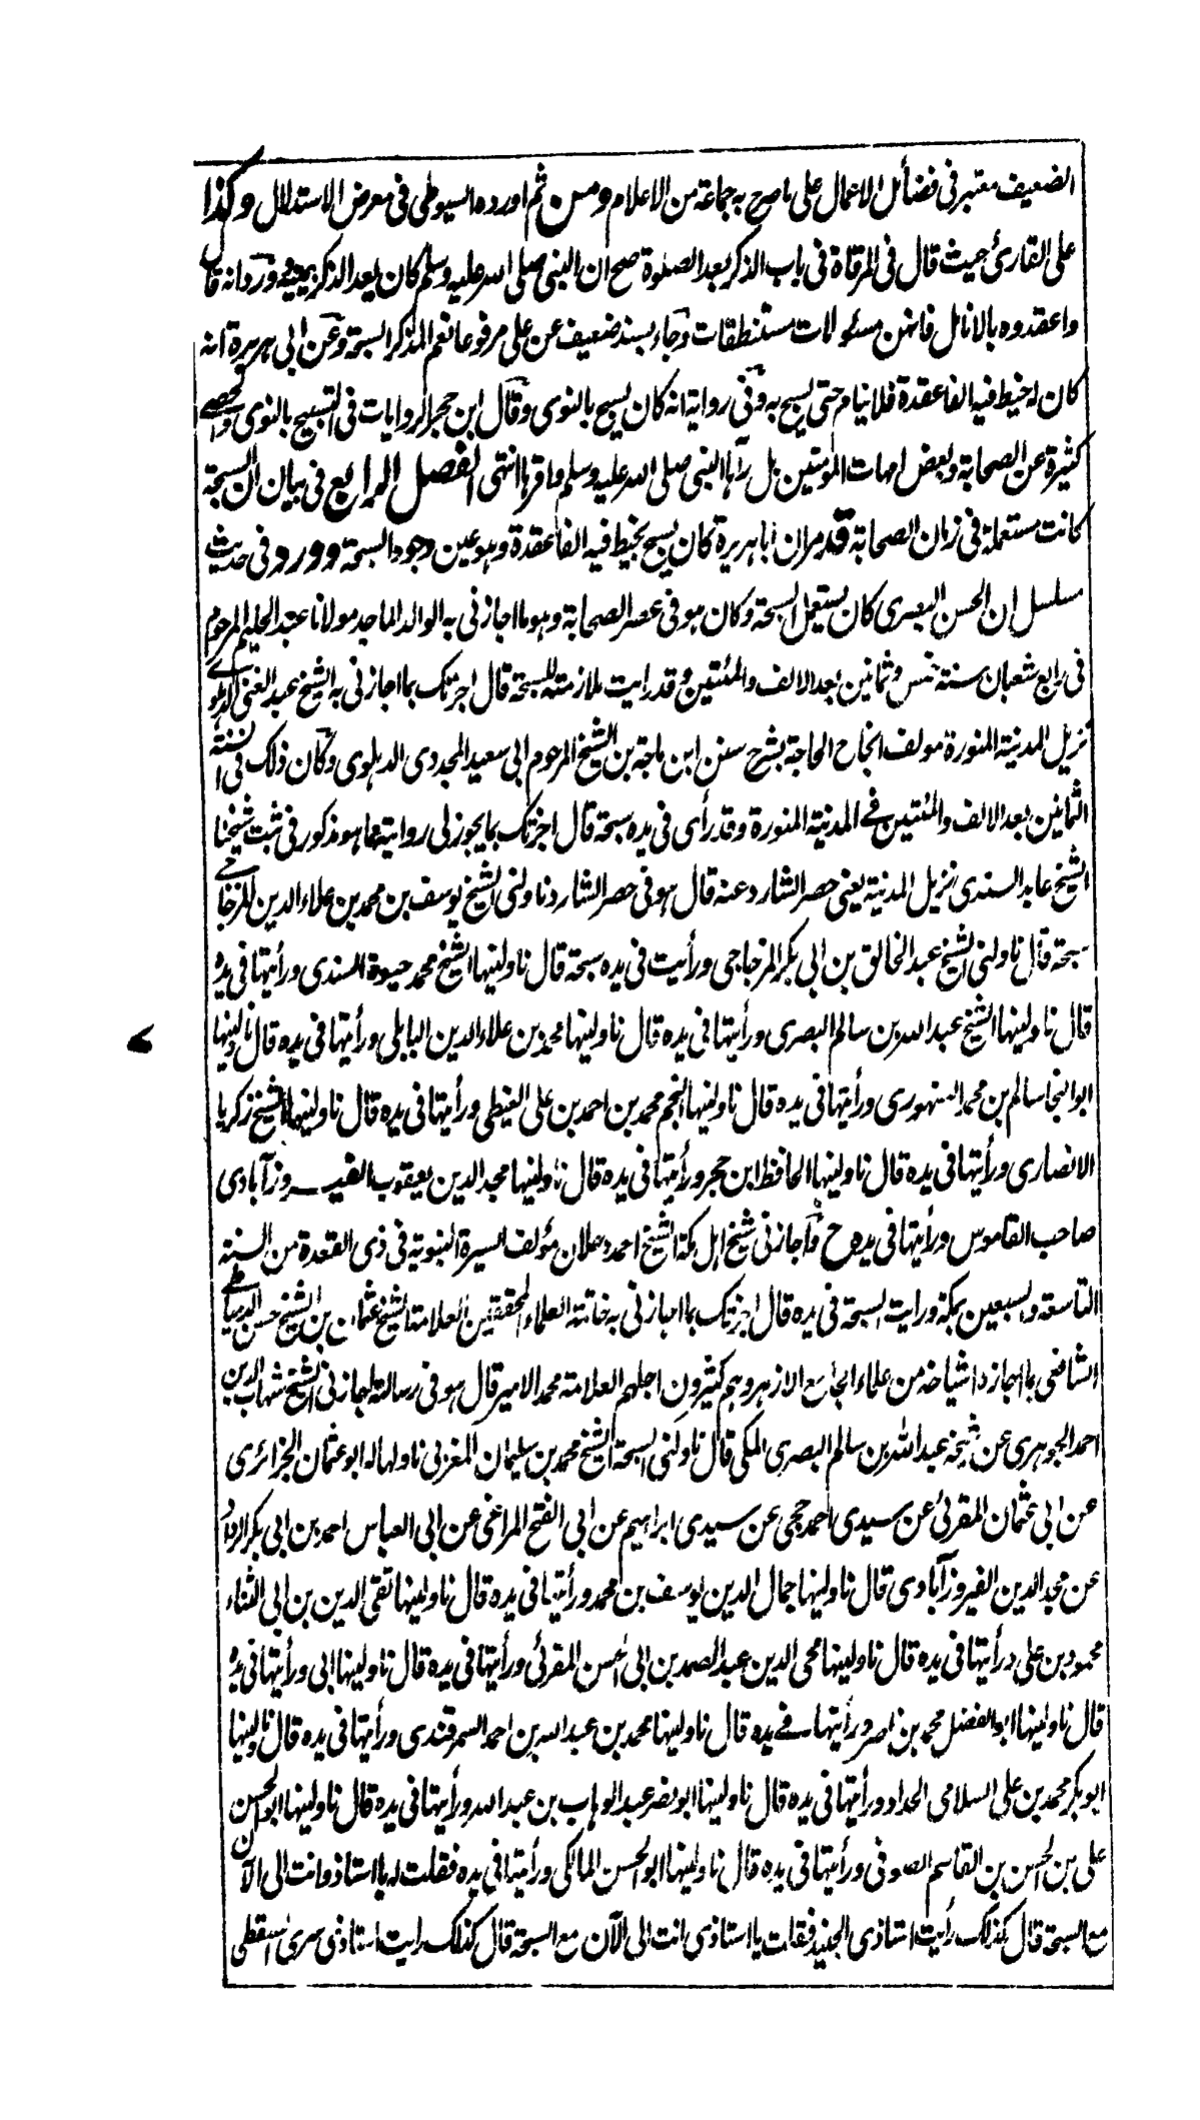 الضعيف معتبر في فضائل الاعمال على ما صرح به جماعة من الاعلام ومن ثم اورده السيوطي في معرض الاستدلال وكذا
على القارئ حيث قال في المرقاة في باب الذكر بعد الصلوة صح ان النبي صلى الله عليه وسلم كان يعد الذكر بيمينه وورد انه قال
واعقدوه بالانامل فانهن مسئولات مستنطقات وجاء بسند ضعيف عن علي مرفوعا نعم المذكر السبحة وعن ابي هريرة انه
كان له خيط فيه الفا عقدة فلا ينام حتى يسبح به وفي رواية انه كان يسبح بالنوى وقال ابن حجر الروايات في التسبيح بالنوى والحصے
كثيرة عن الصحابة وبعض امهات المؤمنين بل رآها النبي صلى الله عليه وسلم واقرها انتهى الفصل الرابع في بيان ان السبحة
كانت مستعملة في زمان الصحابة قد مر ان ابا هريرة كان يسبح بخيط فيه الفا عقدة وهو عين وجود السبحة وورد في حديث
مسلسل ان الحسن البصري كان يستعمل السبحة وكان هو في عصر الصحابة وهو ما اجازني به الوالد الماجد مولانا عبد الحليم المرحوم
في رابع شعبان سنة خمس وثمانين بعد الالف والمئتين وقد رايت ملازمته للسبحة قال اجزتك بما اجازني به الشيخ عبد الغني الدهلوے
نزيل المدنية المنورة مولف انجاح الحاجة بشرح سنن ابن ماجة بن الشيخ المرحوم ابي سعيد المجددي الدهلوي وكان ذلك في السنة
الثمانين بعد الالف والمئتين في المدنية المنورة وقد رأى في يده سبحة قال اجزتك بما يجوز لي روايته مما هو مذكور في ثبت شيخنا
الشيخ عابد السندي نزيل المدنية يعني حصر الشارد عنه قال هو في حصر الشارد ناولني الشيخ يوسف بن محمد بن علاء الدين المزجاجے
سبحة قال ناولني الشيخ عبد الخالق بن ابي بكر المزجاجي ورأيت في يده سبحة قال ناولنيها الشيخ محمد حيوة السندي ورأيتها في يده
قال ناولنيها الشيخ عبد الله بن سالم البصري ورأيتها في يده قال ناولنيها محمد بن علاء الدين البابلي ورأيتها في يده قال ناولنيها
ابو النجا سالم بن محمد السنهوري ورأيتها في يده قال ناولنيها النجم محمد بن احمد بن علي الغيطي ورأيتها في يده قال ناولنيها الشيخ زكريا
الانصاري ورأيتها في يده قال ناولنيها الحافظ ابن حجر ورأيتها في يده قال ناولنيها مجد الدين يعقوب الفيروزآبادي
صاحب القاموس ورأيتها في يده ح وأجازني شيخ اهل مكة الشيخ احمد دحلان مؤلف السيرة النبوية في ذي القعدة من السنة
التاسعة والسبعين بمكة ورايت السبحة في يده قال اجزتك بما اجازني به خاتمة العلماء المحققين العلامة الشيخ عثمان بن الشيخ حسن الدمياطے
الشافعي بما اجازه اشياخه من علماء الجامع الازهر وهم كثيرون اجلهم العلامة محمد الامير قال هو في رسالته اجازني الشيخ شهاب الدين
احمد الجوهري عن شيخه عبد الله بن سالم البصري المكي قال ناولني السبحة الشيخ محمد بن سليمان المغربي ناولها له ابو عثمان الجزائري
عن ابي عثمان المقرئ عن سيدي احمد حجي عن سيدي ابراهيم عن ابي الفتح المراغي عن ابي العباس احمد بن ابي بكر الرداد
عن مجد الدين الفيروزآبادي قال ناولنيها جمال الدين يوسف بن محمد ورأيتها في يده قال ناولنيها تقي الدين بن ابي الثناء
محمود بن علي ورأيتها في يده قال ناولنيها محي الدين عبد الصمد بن ابي الحسن المقرئ ورأيتها في يده قال ناولنيها ابي ورأيتها في يده
قال ناولنيها ابو الفضل محمد بن ناصر ورأيتها في يده قال ناولنيها محمد بن عبد الله بن احمد السمرقندي ورأيتها في يده قال ناولنيها
ابو بكر محمد بن علي السلامي الحداد ورأيتها في يده قال ناولنيها ابو نصر عبد الوهاب بن عبد الله ورأيتها في يده قال ناولنيها ابو الحسن
علي بن الحسن بن القاسم الصوفي ورأيتها في يده قال ناولنيها ابو الحسن المالكي ورأيتها في يده فقلت له يا استاذ وانت الى الآن
مع السبحة قال كذلك رأيت استاذي الجنيد فقلت يا استاذي انت الى الآن مع السبحة قال كذلك رايت استاذي سري السقطي